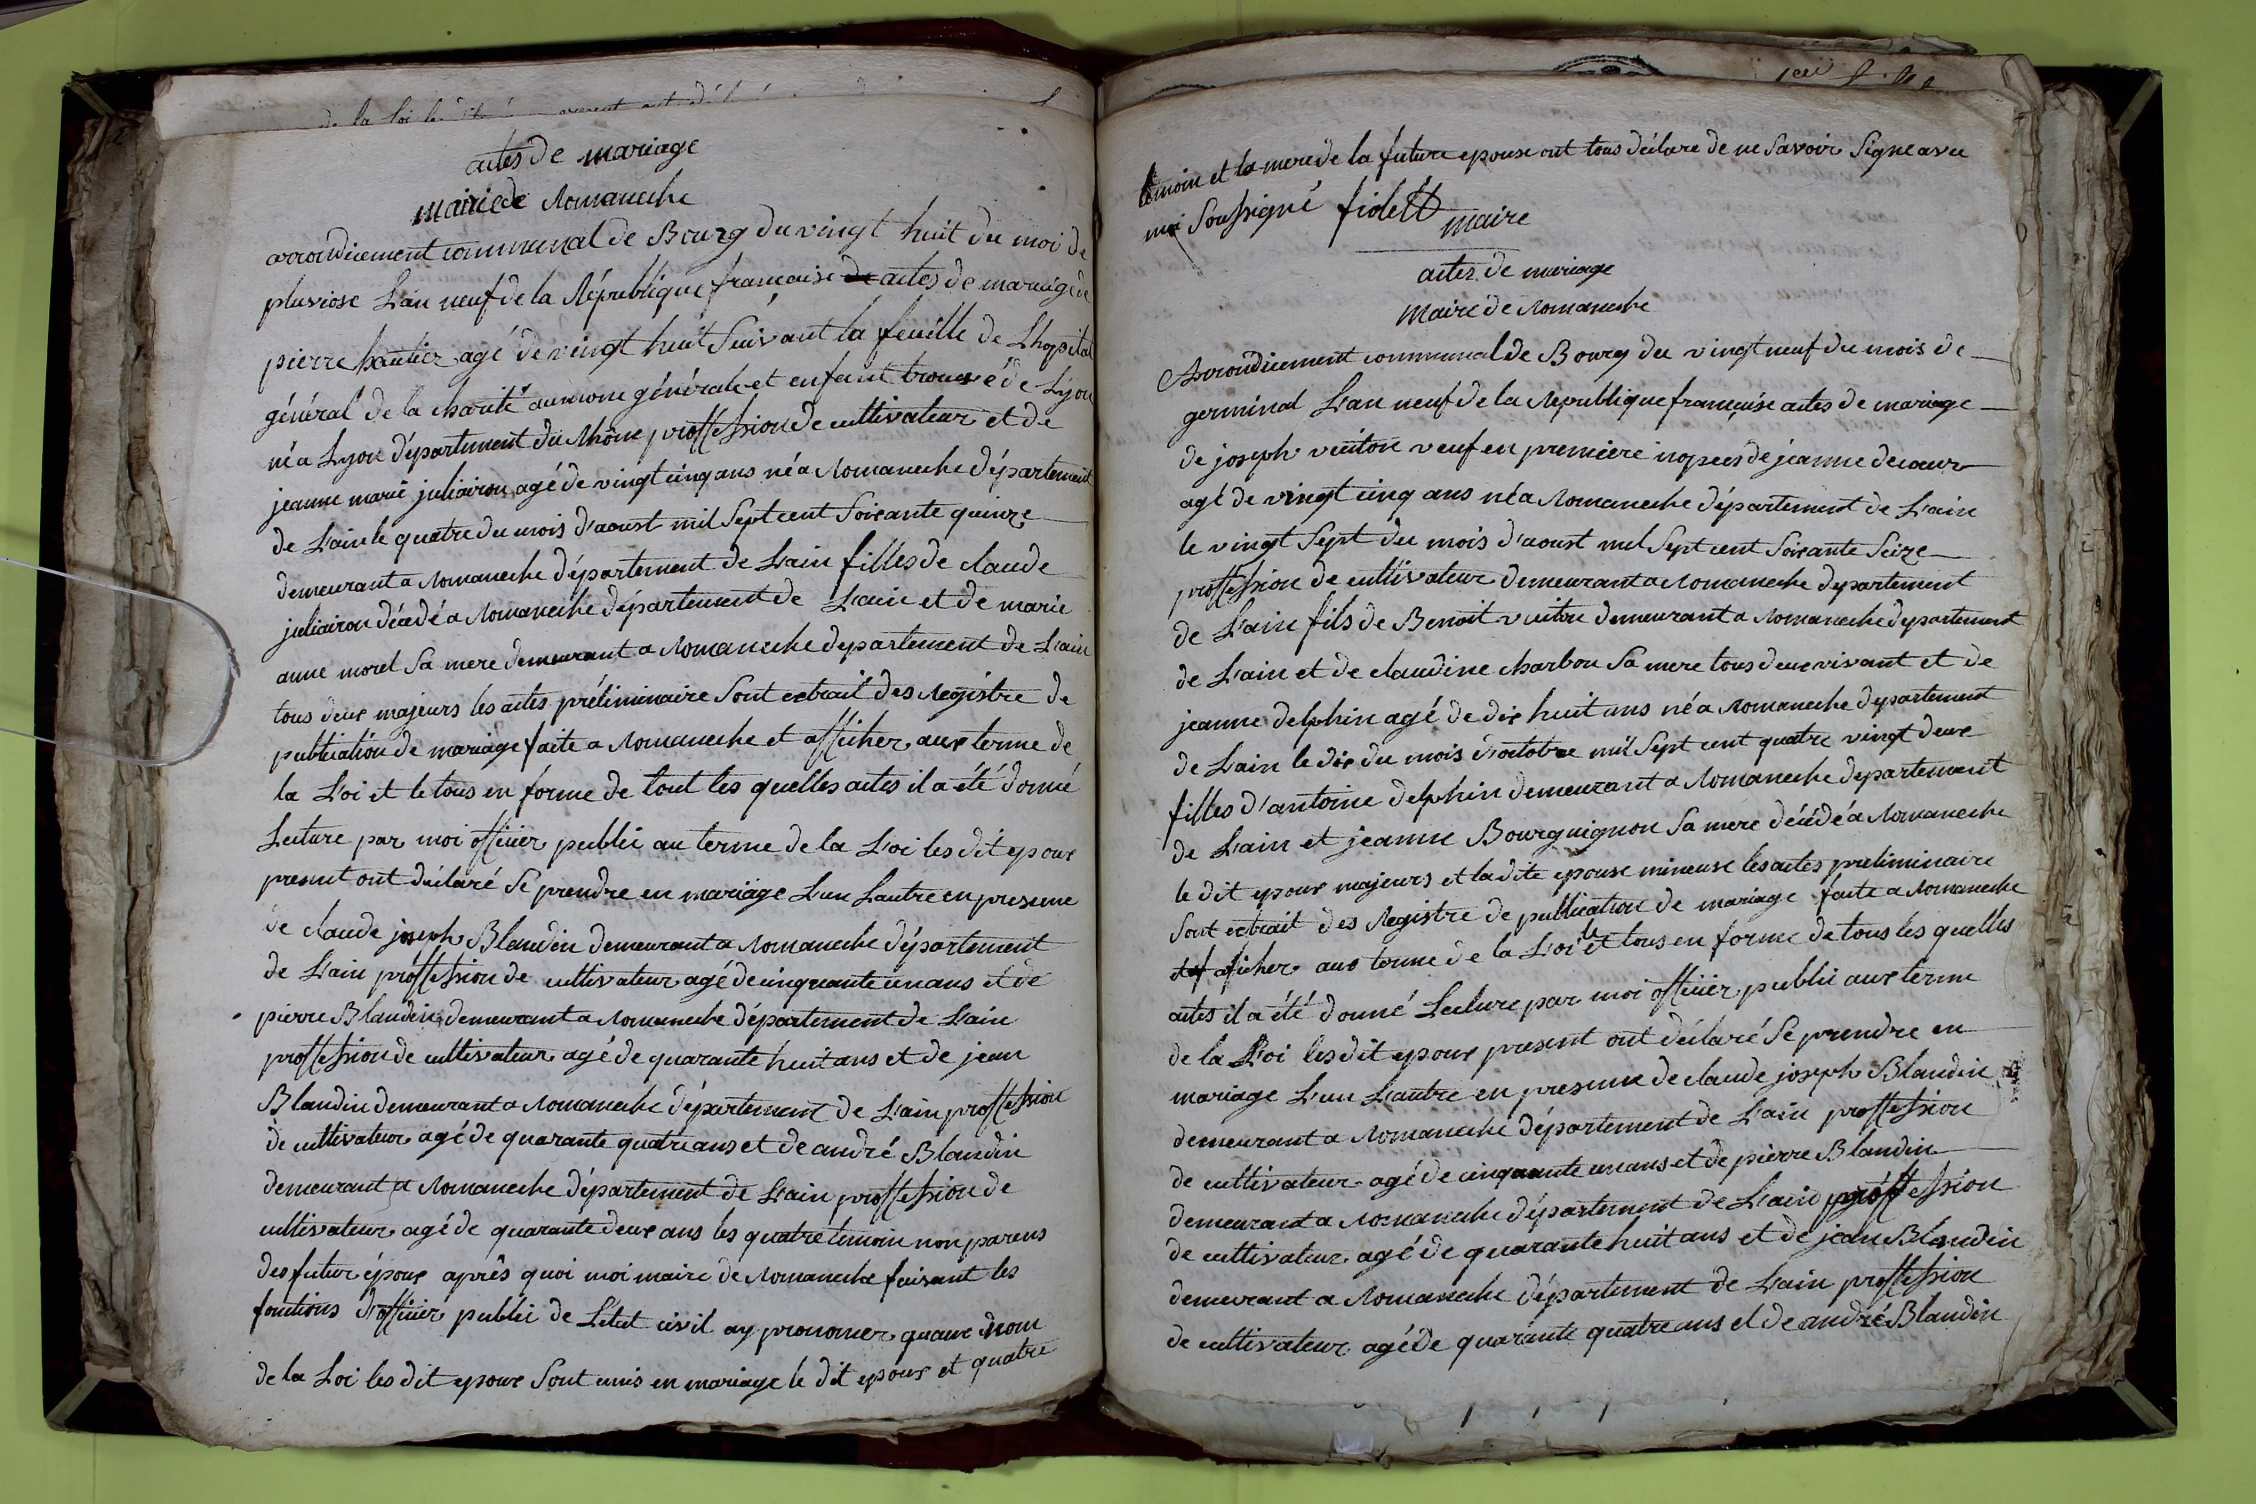 de la Loi les dit
actes de mariage
mairie de Romaneche
arrondicement communal de Bourg du vingt huit du moi de
pluviose L'an neuf de la République française de actes de mariage de
pierre hautier agé de vingt huit Suivant la feuille de Lhopital
général de la charité aumone générale et enfant trouvé de Lyon
né a Lyon département du Rhône proffession de cultivateur et de
jeanne marie juliairon agé de vingt cinq ans né a Romaneche département
de L'ain le quatre du mois d'aoust mil Sept cent Soixante quinze
demeurant a Romaneche département de L'ain filles de claude
juliairon décédé a Romaneche département de L'ain et de marie
anne morel Sa mere demeurant a Romaneche departement de L'ain
tous deux majeurs les actes préliminaire Sont extrait des Registre de
publication de mariage faite a Romaneche et afficher aux terme de
la Loi et le tous en forme de tout les quelles actes il a été donné
Lecture par moi officier public au terme de la Loi les dit epoux
present ont déclaré Se prendre en mariage L'un Lautre en presence
de claude joseph Blandin demeurant a Romaneche département
de L'ain proffession de cultivateur agé de cinquante un ans et de
pierre Blandin demeurant a Romaneche département de L'ain
proffession de cultivateur agé de quarante huit ans et de jean
Blandin demeurant a Romaneche département de L'ain proffession
de cultivateur agé de quarante quatre ans et de andré Blandin
demeurant a Romaneche département de L'ain proffession de
cultivateur agé de quarante deux ans les quatre temoin non parens
des futur époux après quoi moi maire de Romaneche faisant les
fonctions d'officier public de L'état civil ay prononcer quaux nom
de la Loi les dit epoux Sont unis en mariage le dit epoux et quatre
temoin et la mere de la future epouse ont tous déclare de ne Savoir Signe avec
moi Soussigné fidelt
maire
actes de mariage
Maire de Romaneche
Arrondicement communal de Bourg du vingt neuf du mois de
germinal L'an neuf de la Republique française actes de mariage
de joseph vuiton veuf en premiere nopces de jeanne decoeur
agé de vingt cinq ans né a Romaneche département de L'ain
le vingt Sept du mois d'aoust mil Sept cent Soixante Seize
proffession de cultivateur demeurant a Romaneche departement
de L'ain fils de Benoit vuiton demeurant a Romaneche departement
de L'ain et de claudine charbon Sa mere tous deux vivant et de
jeanne delphin agé de dix huit ans né a Romaneche departement
de L'ain le dix du mois d'octobre mil Sept cent quatre vingt deux
filles d'antoine delphin demeurant a Romaneche departement
de L'ain et jeanne Bourguignon Sa mere décédé a Romaneche
le dit epoux majeurs et la dite epouse mineuse les actes preliminaire
Sont extrait des Registre de publication de mariage faite a Romaneche
aficher aux terme de la Loi et le tous en forme de tous les quelles
actes il a été donné Lecture par moi officier public aux terme
de la Loi les dit epoux present ont déclaré Se prendre en
mariage L'un L'autre en presence de claude joseph Blandin
demeurant a Romaneche département de L'ain proffession
de cultivateur agé de cinquante un ans et de pierre Blandin
demeurant a Romaneche département de L'ain proffession
de cultivateur agé de quarante huit ans et de jean Blandin
demeurant a Romaneche département de L'ain proffession
de cultivateur agé de quarante quatre ans et de andré Blandin